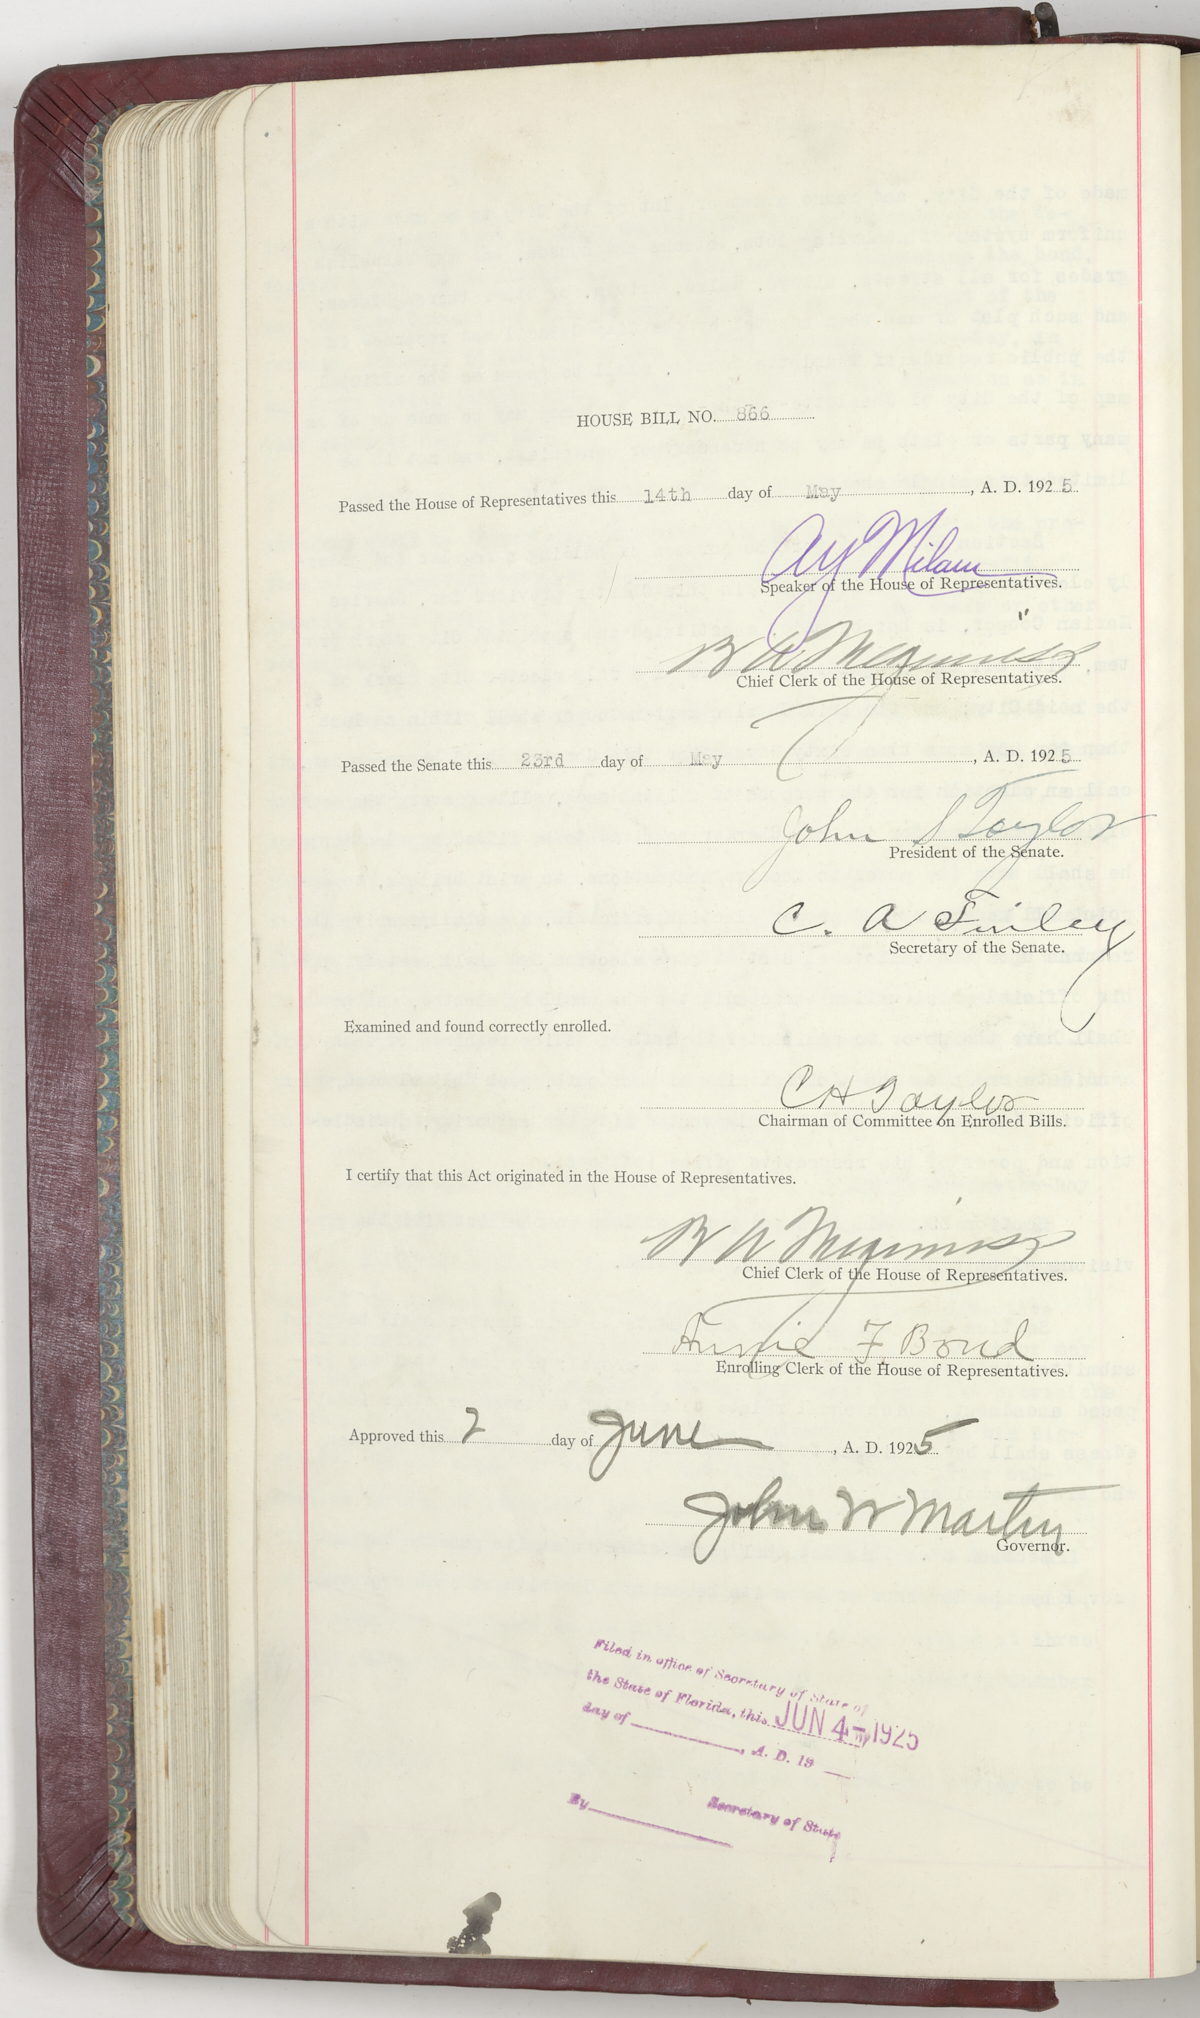 HOUSE BILL NO. 866
Passed the House of Representatives this 14th day of May, A. D. 1925
A Y Milam
Speaker of the House of Representatives.
Chief Clerk of the House of Representatives.
Passed the Senate this 23rd day of May, A. D. 1925
John S Taylor
President of the Senate.
C. A Finley
Secretary of the Senate.
Examined and found correctly enrolled.
C H Taylor
Chairman of Committee on Enrolled Bills.
I certify that this Act originated in the House of Representatives.
Chief Clerk of the House of Representatives.
F Bond
Enrolling Clerk of the House of Representatives.
Approved this 2 day of June, A. D. 1925
John W Martin
Governor.
Filed in office of Secretary of State of
the State of Florida, this JUN 4- 1925
day of , A. D. 19
Secretary of State
By